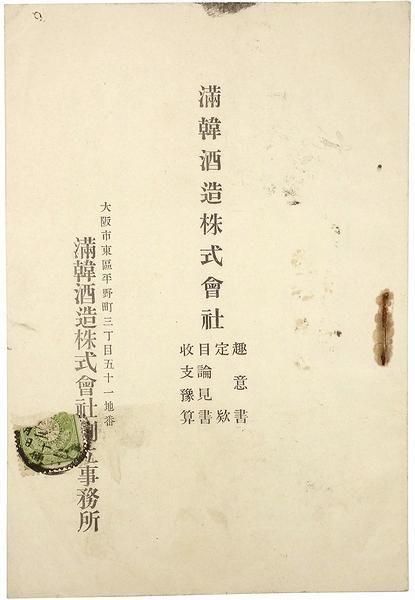 滿韓酒造株式會社
趣意書
定欵
目論見書
收支豫算
大阪市東區平野町三丁目五十一地番
滿韓酒造株式會社創立事務所